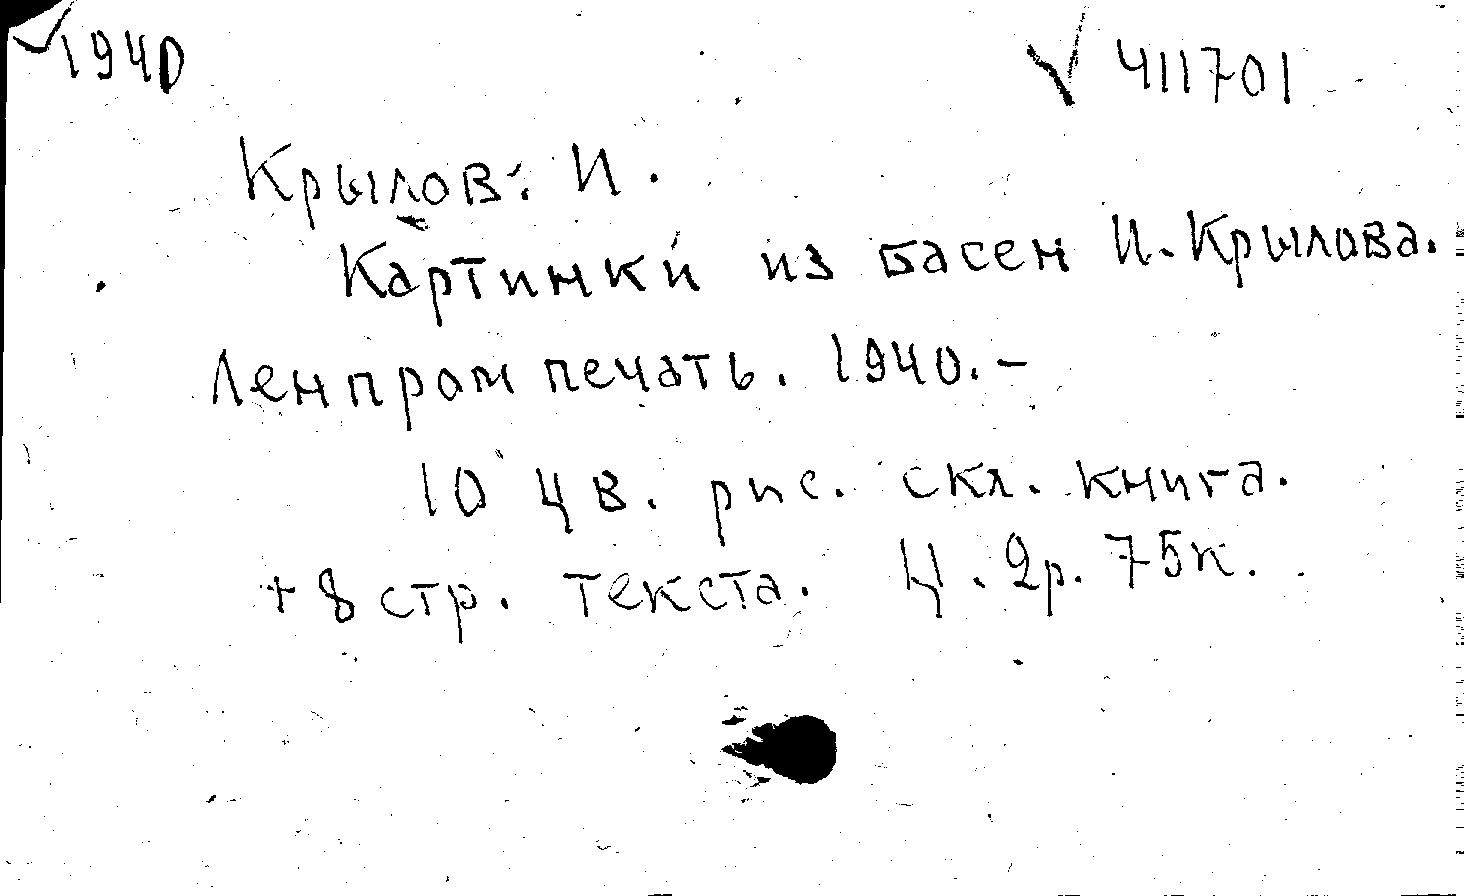 ✓1940 ✓ 411701
Крылов. И.
Картинки из басен И. Крылова.
Ленпромпечать. 1940. –
10 цв. рис. скл. книга.
+ 8 стр. текста. Ц. 2р. 75к.